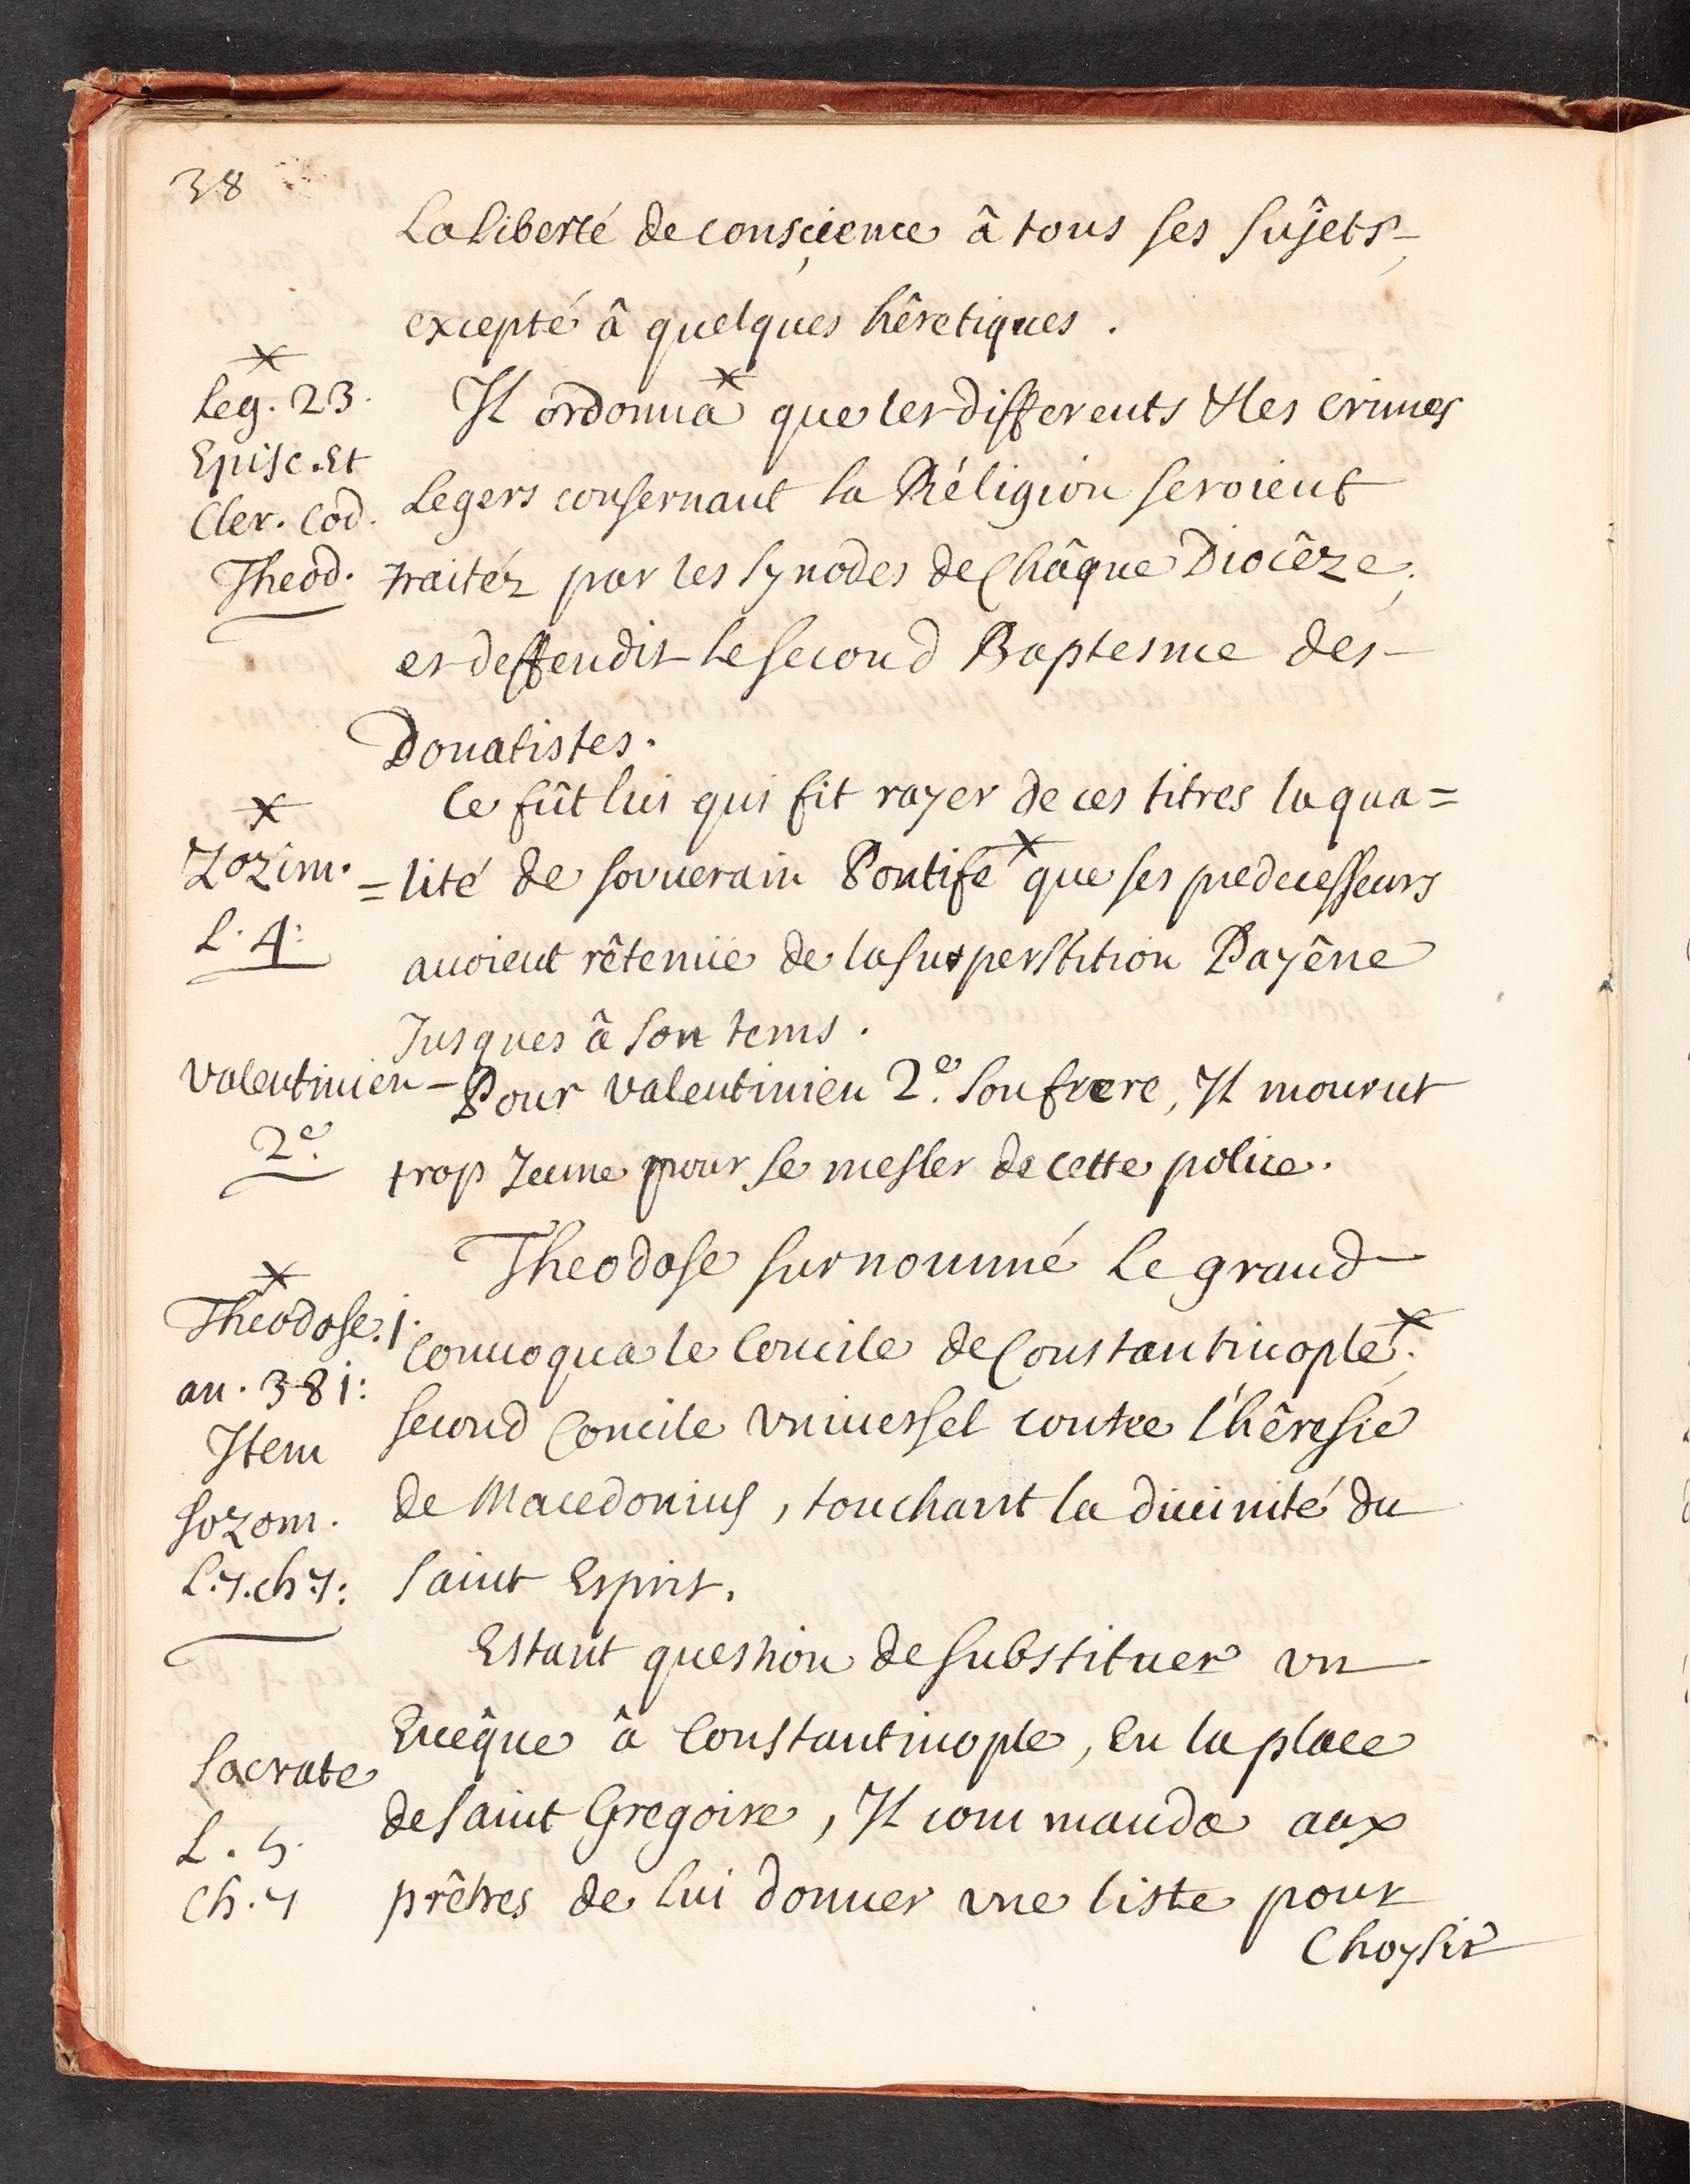 38
La Liberté de consçience â tous ses sûjets,
excepté â quelques hêretiques.
x
Leg. 23.
Episc. Et
Cler. Cod.
Theod.
Il ordonna x que les differents & les crimes
Legers consernant la Réligion seroient
traitéz par les synodes de Châque Diocêze;
et deffendit le second Baptesme des
Donatistes.
x
Zozim.
L. 4:
Ce fût lui qui fit rayer de ces titres la qua=
=lité de souuerain Pontife x que ses predecesseurs
auoient rêtenüe de la superstition Payêne
Jusques â son tems.
Valentinien
2e.
Pour Valentinien 2e. son frere, Il mourut
trop Jeune pour se mesler de cette police.
x
Theodose. 1.
an. 381:
Item
Sozom.
L. 7. ch 7:
Theodose surnommé Le grand
Conuoqua le Concile de Constantinople x;
second Concile vniuersel contre l'hêresie
de Macedonius, touchant la diuinité du
Saint Esprit.
Estant question de substituer vn
Euêque â Constantinople, En la place
de Saint Gregoire, Il commanda aux
prêtres de lui donner vne liste pour
Socrate
L. 5.
Ch. 7
Choysir